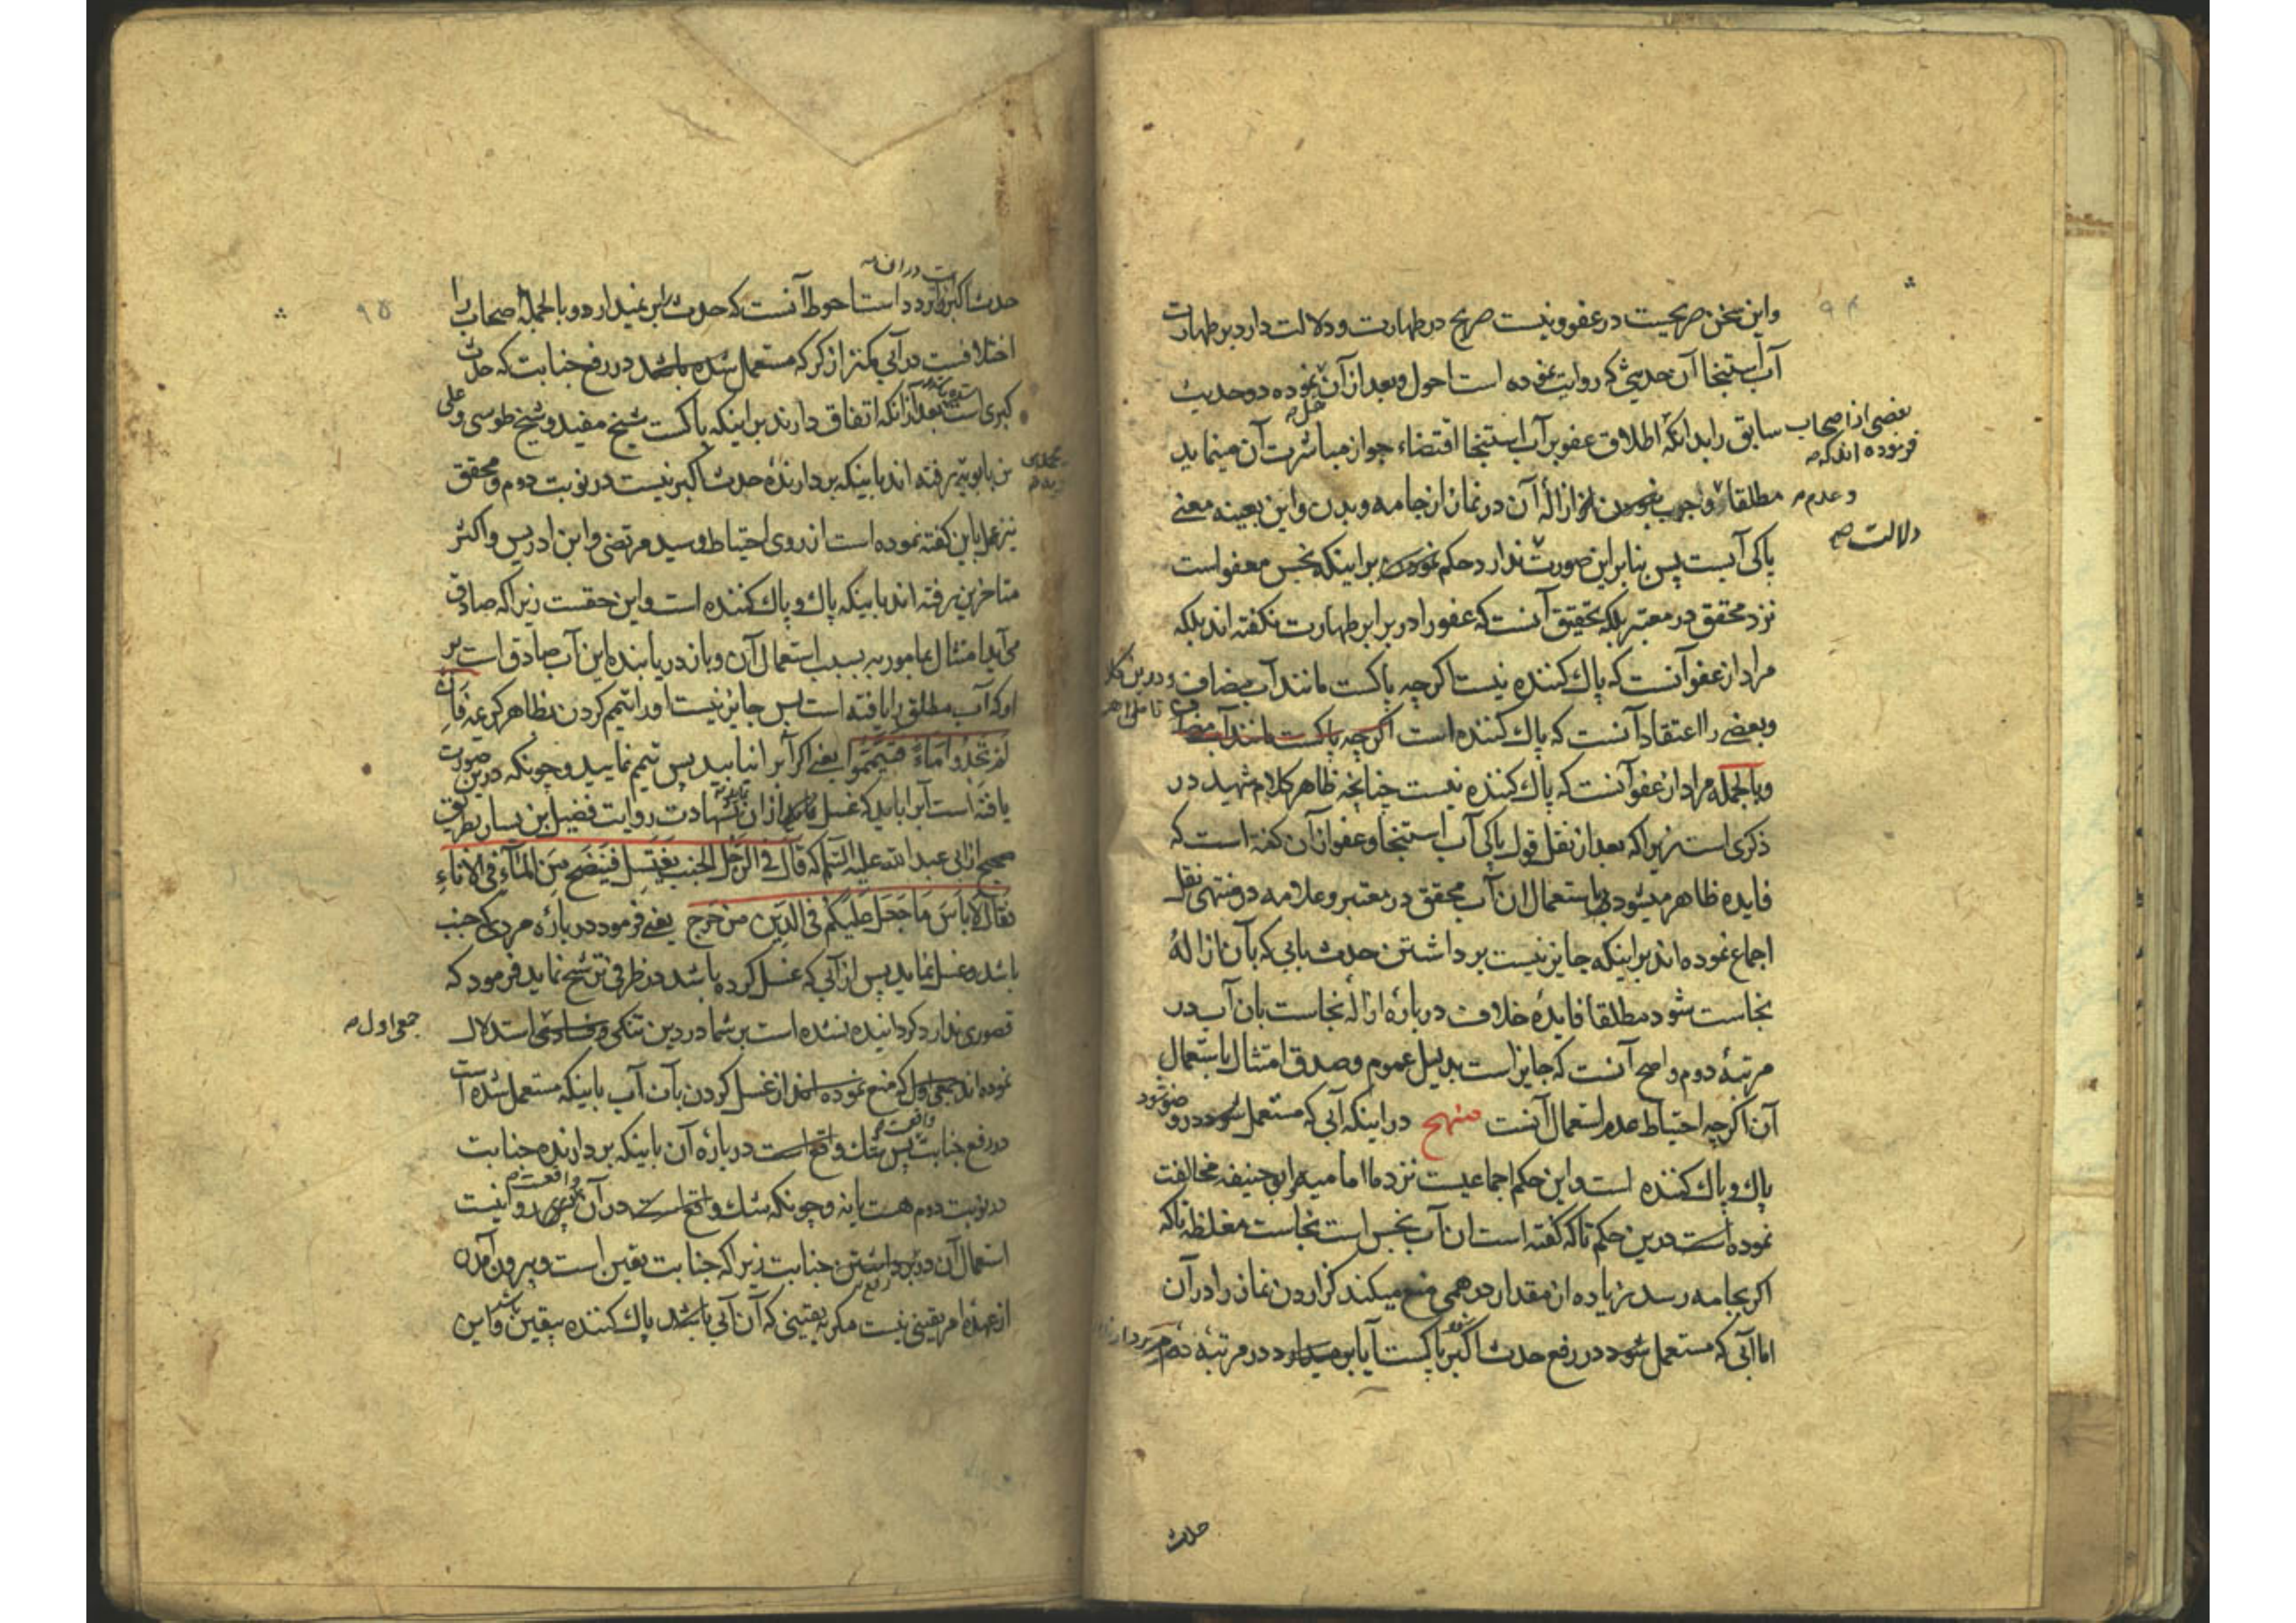 ۹۴
واین سخن صریحیت در عفو و نیست صریح در طهارت و دلالت دارد بر طهارت
آب استنجا آن حدیثی که روایت نموده است احول و بعد از آن نموده دو حدیث
حمل
سابق را بدانکه اطلاق عفو بر آب استنجا اقتضاء جواز مباشرت آن مینماید
بعضی از اصحاب
فرموده اند که
مطلقا و واجب نبودن ازالهٔ آن در نماز از جامه و بدن و این بعینه معنی
و عدم
پاکی آبست پس بنابر این صورت ندارد حکم نمودن بر اینکه نجس معفو است
دلالت
نزد محقق در معتبر بلکه تحقیق آنست که عفو را در برابر طهارت نکفته اند بلکه
مراد از عفو آنست که پاک کننده نیست اکرچه پاکست مانند آب مضاف
و بعضی را اعتقاد آنست که پاک کننده است اکرچه پاکست مانند آب مضاف
و بالجمله مراد از عفو آنست که پاک کننده نیست چنانچه ظاهر کلام شهید در
ذکری است زیرا که بعد از نقل قول پاکی آب استنجا و عفو از آن کفته است که
فایده ظاهر میشود باستعمال ان آب محقق در معتبر و علامه در منتهی نقل
اجماع نموده اند بر اینکه جایز نیست برداشتن حدث بابی که بآن ازالهٔ
نجاست شود مطلقا فایدهٔ خلاف دربارهٔ ازالهٔ نجاست بان آب در
مرتبهٔ دوم و اصح آنست که جایز است بدلیل عموم و صدق امتثال باستعمال
آن اکرچه احتیاط عدم استعمال آنست منهج در اینکه آبی که مستعمل شود در وضو
پاک و پاک کننده است و این حکم اجماعیست نزد ما امامیه و ابوحنیفه مخالفت
نموده است درین حکم تا که کفته است ان آب نجس است نجاست مغلظه تا که
اکر بجامه رسد زیاده از مقدار درهمی منع میکند کزاردن نماز را در آن
اما آبی که مستعمل شود در رفع حدث اکبر پاکست آیا بر میدارد در مرتبهٔ دوم
حدث
۹۵
حدث اکبر را است احوط آنست که حدث را بر نمیدارد و بالجمله اصحاب را
اختلافست در آبی کمتر از کر که مستعمل شده باشد در رفع جنابت که حدث
کبری است بعد از انکه اتفاق دارند بر اینکه پاکست شیخ مفید و شیخ طوسی و علی
بن بابویه رفته اند باینکه بردارندهٔ حدث اکبر نیست در نوبت دوم و محقق
نیز عمل باین کفته نموده است از روی احتیاط و سید مرتضی و ابن ادریس و اکثر
متاخرین رفته اند باینکه پاک و پاک کننده است و این حقست زیرا که صادق
می آید امتثال بمامور به بسبب استعمال آن و باز در یابنده این آب صادق است بر
او که آب مطلق را یافته است پس جایز نیست او را تیمم کردن بظاهر کریمه فان
لم تجدوا ماء فتیمموا یعنی اکر آبرا نیابید پس تیمم نمایید و چونکه درین صورت
یافته است آبرا باید که غسل نماید ازان بشهادت روایت فضیل بن یسار بطریق
صحیح از ابی عبد الله علیه السلم که قال فی الرجل الجنب یغتسل فینضح من الماء فی الاناء
فقال لا باس ما جعل علیکم فی الدین من حرج یعنی فرمود در بارهٔ مردی که جنب
باشد و غسل نماید پس از آبی که غسل کرده باشد در ظرفی ترشح نماید فرمود که
قصوری ندارد کردانیده نشده است بر شما در دین تنکی استدلال
جمعی اول
نموده اند جمعی اول که منع نموده اند از غسل کردن بآن آب باینکه مستعمل شده است
در رفع جنابت پس شک واقع است در بارهٔ آن باینکه بردارنده جنابت
در نوبت دوم هست یا نه و چونکه شک واقع است در آن پس روا نیست
استعمال آن در برداشتن جنابت زیرا که جنابت یقین است و بیرون آمدن
از عهدهٔ امر یقینی نیست مکر به یقینی که آن آبی باشد پاک کننده بیقین و این